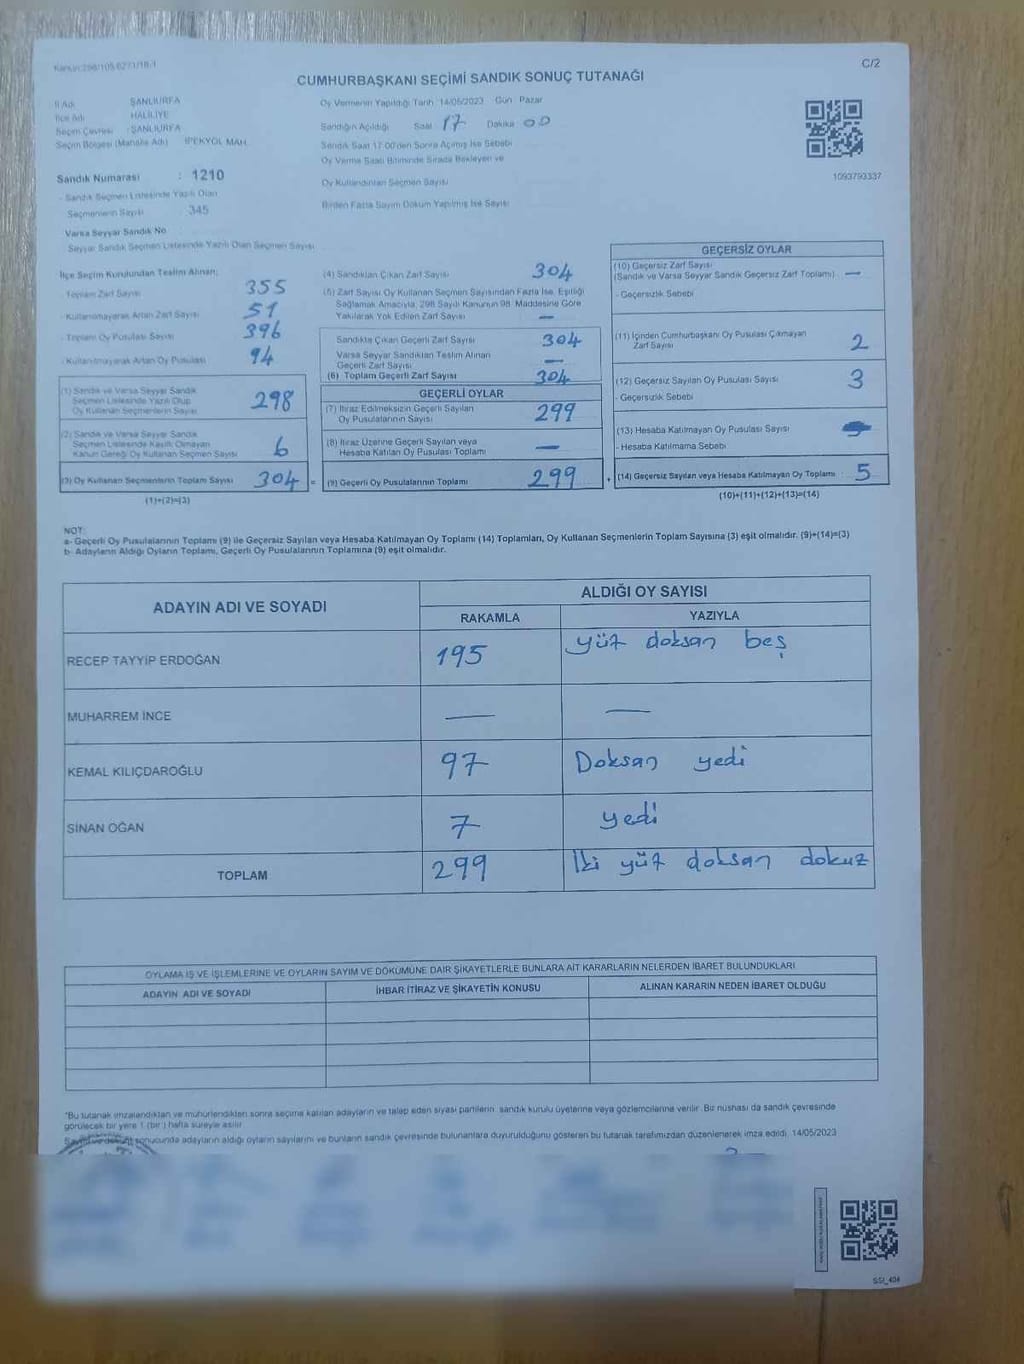 Kanun:298/105 6271/18-1
C/2
CUMHURBAŞKANI SEÇİMİ SANDIK SONUÇ TUTANAĞI
İl Adı ŞANLIURFA
İlçe Adı HALİLİYE
Seçim Çevresi : ŞANLIURFA
Seçim Bölgesi (Mahalle Adı) İPEKYOL MAH.
Sandık Numarası : 1210
- Sandık Seçmen Listesinde Yazılı Olan
Seçmenlerin Sayısı 345
Varsa Seyyar Sandık No
Seyyar Sandık Seçmen Listesinde Yazılı Olan Seçmen Sayısı
Oy Vermenin Yapıldığı Tarih :14/05/2023 Gün Pazar
Sandığın Açıldığı Saat 17 Dakika 00
Sandık Saat 17:00'den Sonra Açılmış İse Sebebi
Oy Verme Saati Bitiminde Sırada Bekleyen ve
Oy Kullandırılan Seçmen Sayısı
Birden Fazla Sayım Döküm Yapılmış İse Sayısı
1093793337
İlçe Seçim Kurulundan Teslim Alınan;
- Toplam Zarf Sayısı 355
- Kullanılmayarak Artan Zarf Sayısı 51
- Toplam Oy Pusulası Sayısı 396
- Kullanılmayarak Artan Oy Pusulası 94
(1) Sandık ve Varsa Seyyar Sandık
Seçmen Listesinde Yazılı Olup
Oy Kullanan Seçmenlerin Sayısı 298
(2) Sandık ve Varsa Seyyar Sandık
Seçmen Listesinde Kayıtlı Olmayan
Kanun Gereği Oy Kullanan Seçmen Sayısı 6
(3) Oy Kullanan Seçmenlerin Toplam Sayısı 304 =
(1)+(2)=(3)
(4) Sandıktan Çıkan Zarf Sayısı 304
(5) Zarf Sayısı Oy Kullanan Seçmen Sayısından Fazla İse, Eşitliği
Sağlamak Amacıyla, 298 Sayılı Kanunun 98. Maddesine Göre
Yakılarak Yok Edilen Zarf Sayısı —
Sandıkta Çıkan Geçerli Zarf Sayısı 304
Varsa Seyyar Sandıktan Teslim Alınan
Geçerli Zarf Sayısı —
(6) Toplam Geçerli Zarf Sayısı 304
GEÇERLİ OYLAR
(7) İtiraz Edilmeksizin Geçerli Sayılan
Oy Pusulalarının Sayısı 299
(8) İtiraz Üzerine Geçerli Sayılan veya
Hesaba Katılan Oy Pusulası Toplamı —
(9) Geçerli Oy Pusulalarının Toplamı 299 +
GEÇERSİZ OYLAR
(10) Geçersiz Zarf Sayısı
(Sandık ve Varsa Seyyar Sandık Geçersiz Zarf Toplamı) —
- Geçersizlik Sebebi
(11) İçinden Cumhurbaşkanı Oy Pusulası Çıkmayan
Zarf Sayısı 2
(12) Geçersiz Sayılan Oy Pusulası Sayısı 3
- Geçersizlik Sebebi
(13) Hesaba Katılmayan Oy Pusulası Sayısı
- Hesaba Katılmama Sebebi
(14) Geçersiz Sayılan veya Hesaba Katılmayan Oy Toplamı : 5
(10)+(11)+(12)+(13)=(14)
NOT:
a- Geçerli Oy Pusulalarının Toplamı (9) ile Geçersiz Sayılan veya Hesaba Katılmayan Oy Toplamı (14) Toplamları, Oy Kullanan Seçmenlerin Toplam Sayısına (3) eşit olmalıdır. (9)+(14)=(3)
b- Adayların Aldığı Oyların Toplamı, Geçerli Oy Pusulalarının Toplamına (9) eşit olmalıdır.
ADAYIN ADI VE SOYADI
ALDIĞI OY SAYISI
RAKAMLA YAZIYLA
RECEP TAYYİP ERDOĞAN 195 yüz doksan beş
MUHARREM İNCE — —
KEMAL KILIÇDAROĞLU 97 Doksan yedi
SİNAN OĞAN 7 yedi
TOPLAM 299 İki yüz doksan dokuz
OYLAMA İŞ VE İŞLEMLERİNE VE OYLARIN SAYIM VE DÖKÜMÜNE DAİR ŞİKAYETLERLE BUNLARA AİT KARARLARIN NELERDEN İBARET BULUNDUKLARI
ADAYIN ADI VE SOYADI İHBAR İTİRAZ VE ŞİKAYETİN KONUSU ALINAN KARARIN NEDEN İBARET OLDUĞU
*Bu tutanak imzalandıktan ve mühürlendikten sonra seçime katılan adayların ve talep eden siyasi partilerin sandık kurulu üyelerine veya gözlemcilerine verilir. Bir nüshası da sandık çevresinde
görülecek bir yere 1 (bir) hafta süreyle asılır.
sonucunda adayların aldığı oyların sayılarını ve bunların sandık çevresinde bulunanlara duyurulduğunu gösteren bu tutanak tarafımızdan düzenlenerek imza edildi. 14/05/2023
SSİ_404